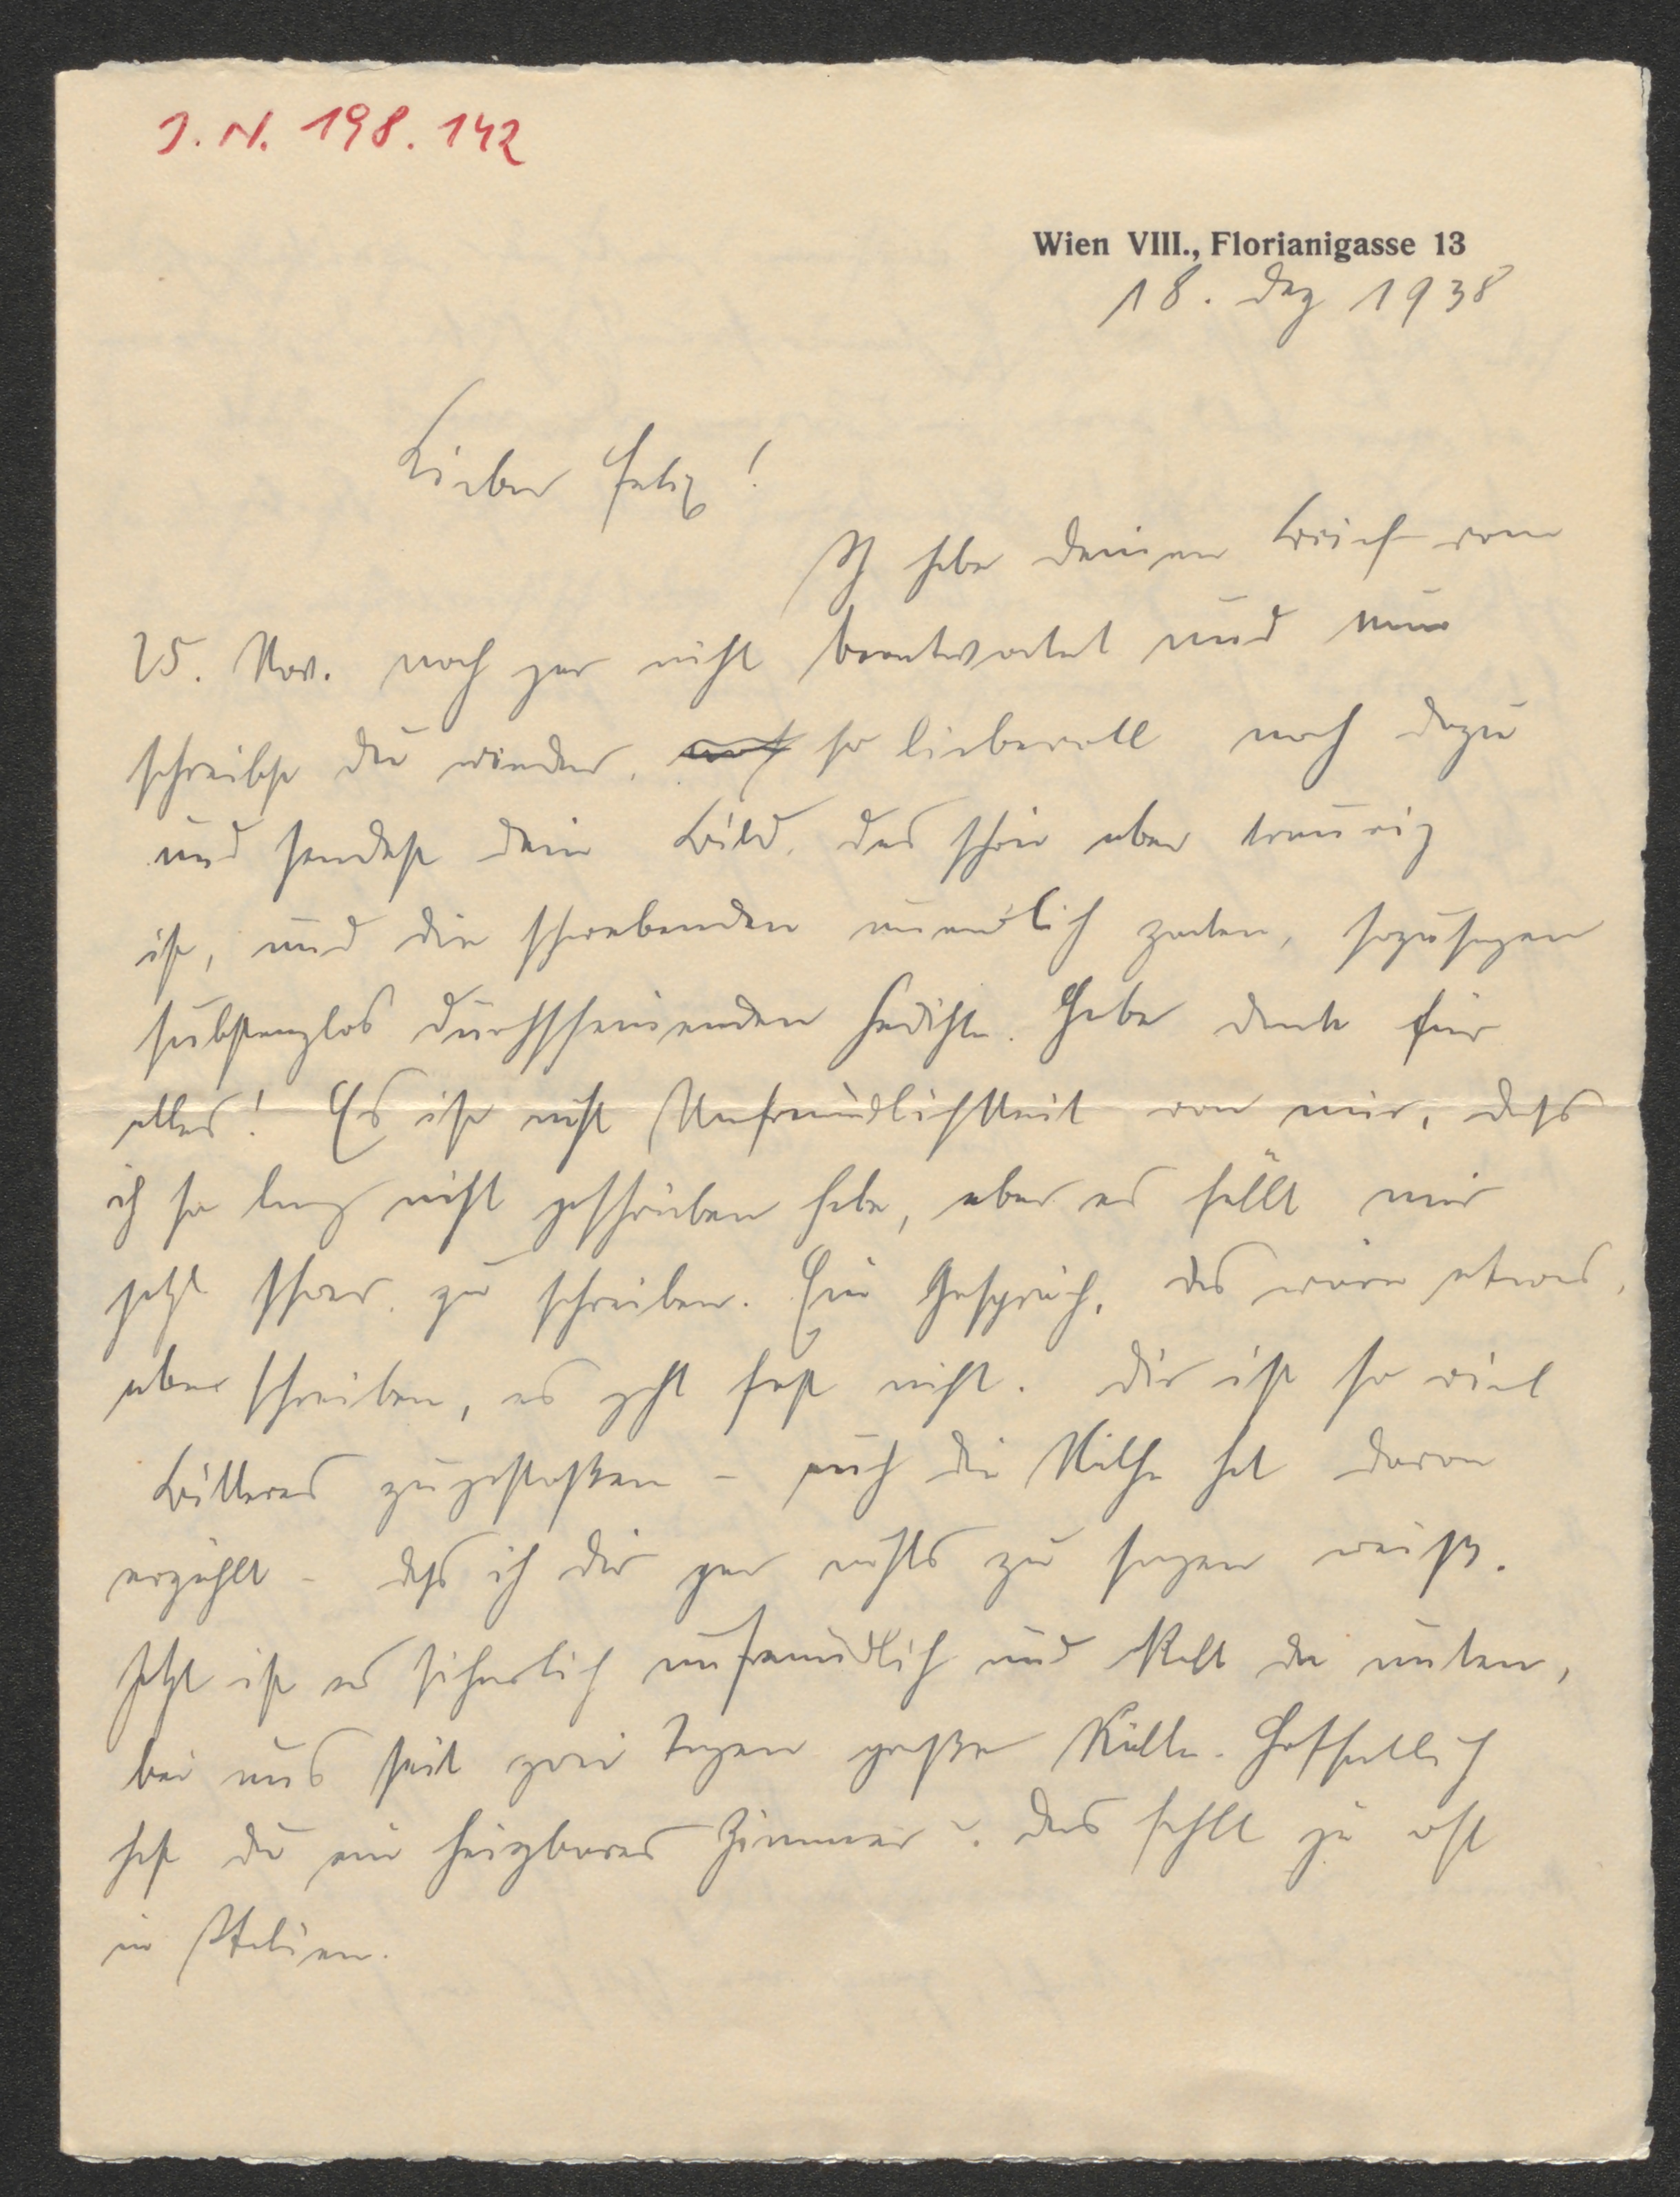 J. N. 198. 142
Wien VIII., Florianigasse 13
18. Dez 1938
Lieber Felix!
Ich habe deinen Brief vom
25. Nov. noch gar nicht beantwortet und nun
schreibst du wieder, so liebevoll noch dazu
und sendest dein Bild, das schön aber traurig
ist, und die schwebenden unendlich zarten, sozusagen
substanzlos durchscheinenden Gedichte. Habe dank für
alles! Es ist nicht Unfreundlichkeit von mir, dass
ich so lang nicht geschrieben habe, aber es fällt mir
jetzt schwer, zu schreiben. Ein Gespräch, das wäre etwas,
aber schreiben, es geht fast nicht. Dir ist so viel
Bitteres zugestoßen – auch die hat davon
erzählt – dass ich dir gar nichts zu sagen weiß.
Jetzt ist es sicherlich unfreundlich und kalt da unten,
bei uns seit zwei Tagen große Kälte. Hoffentlich
hast du ein heizbares Zimmer. Das fehlt ja oft
in Italien.